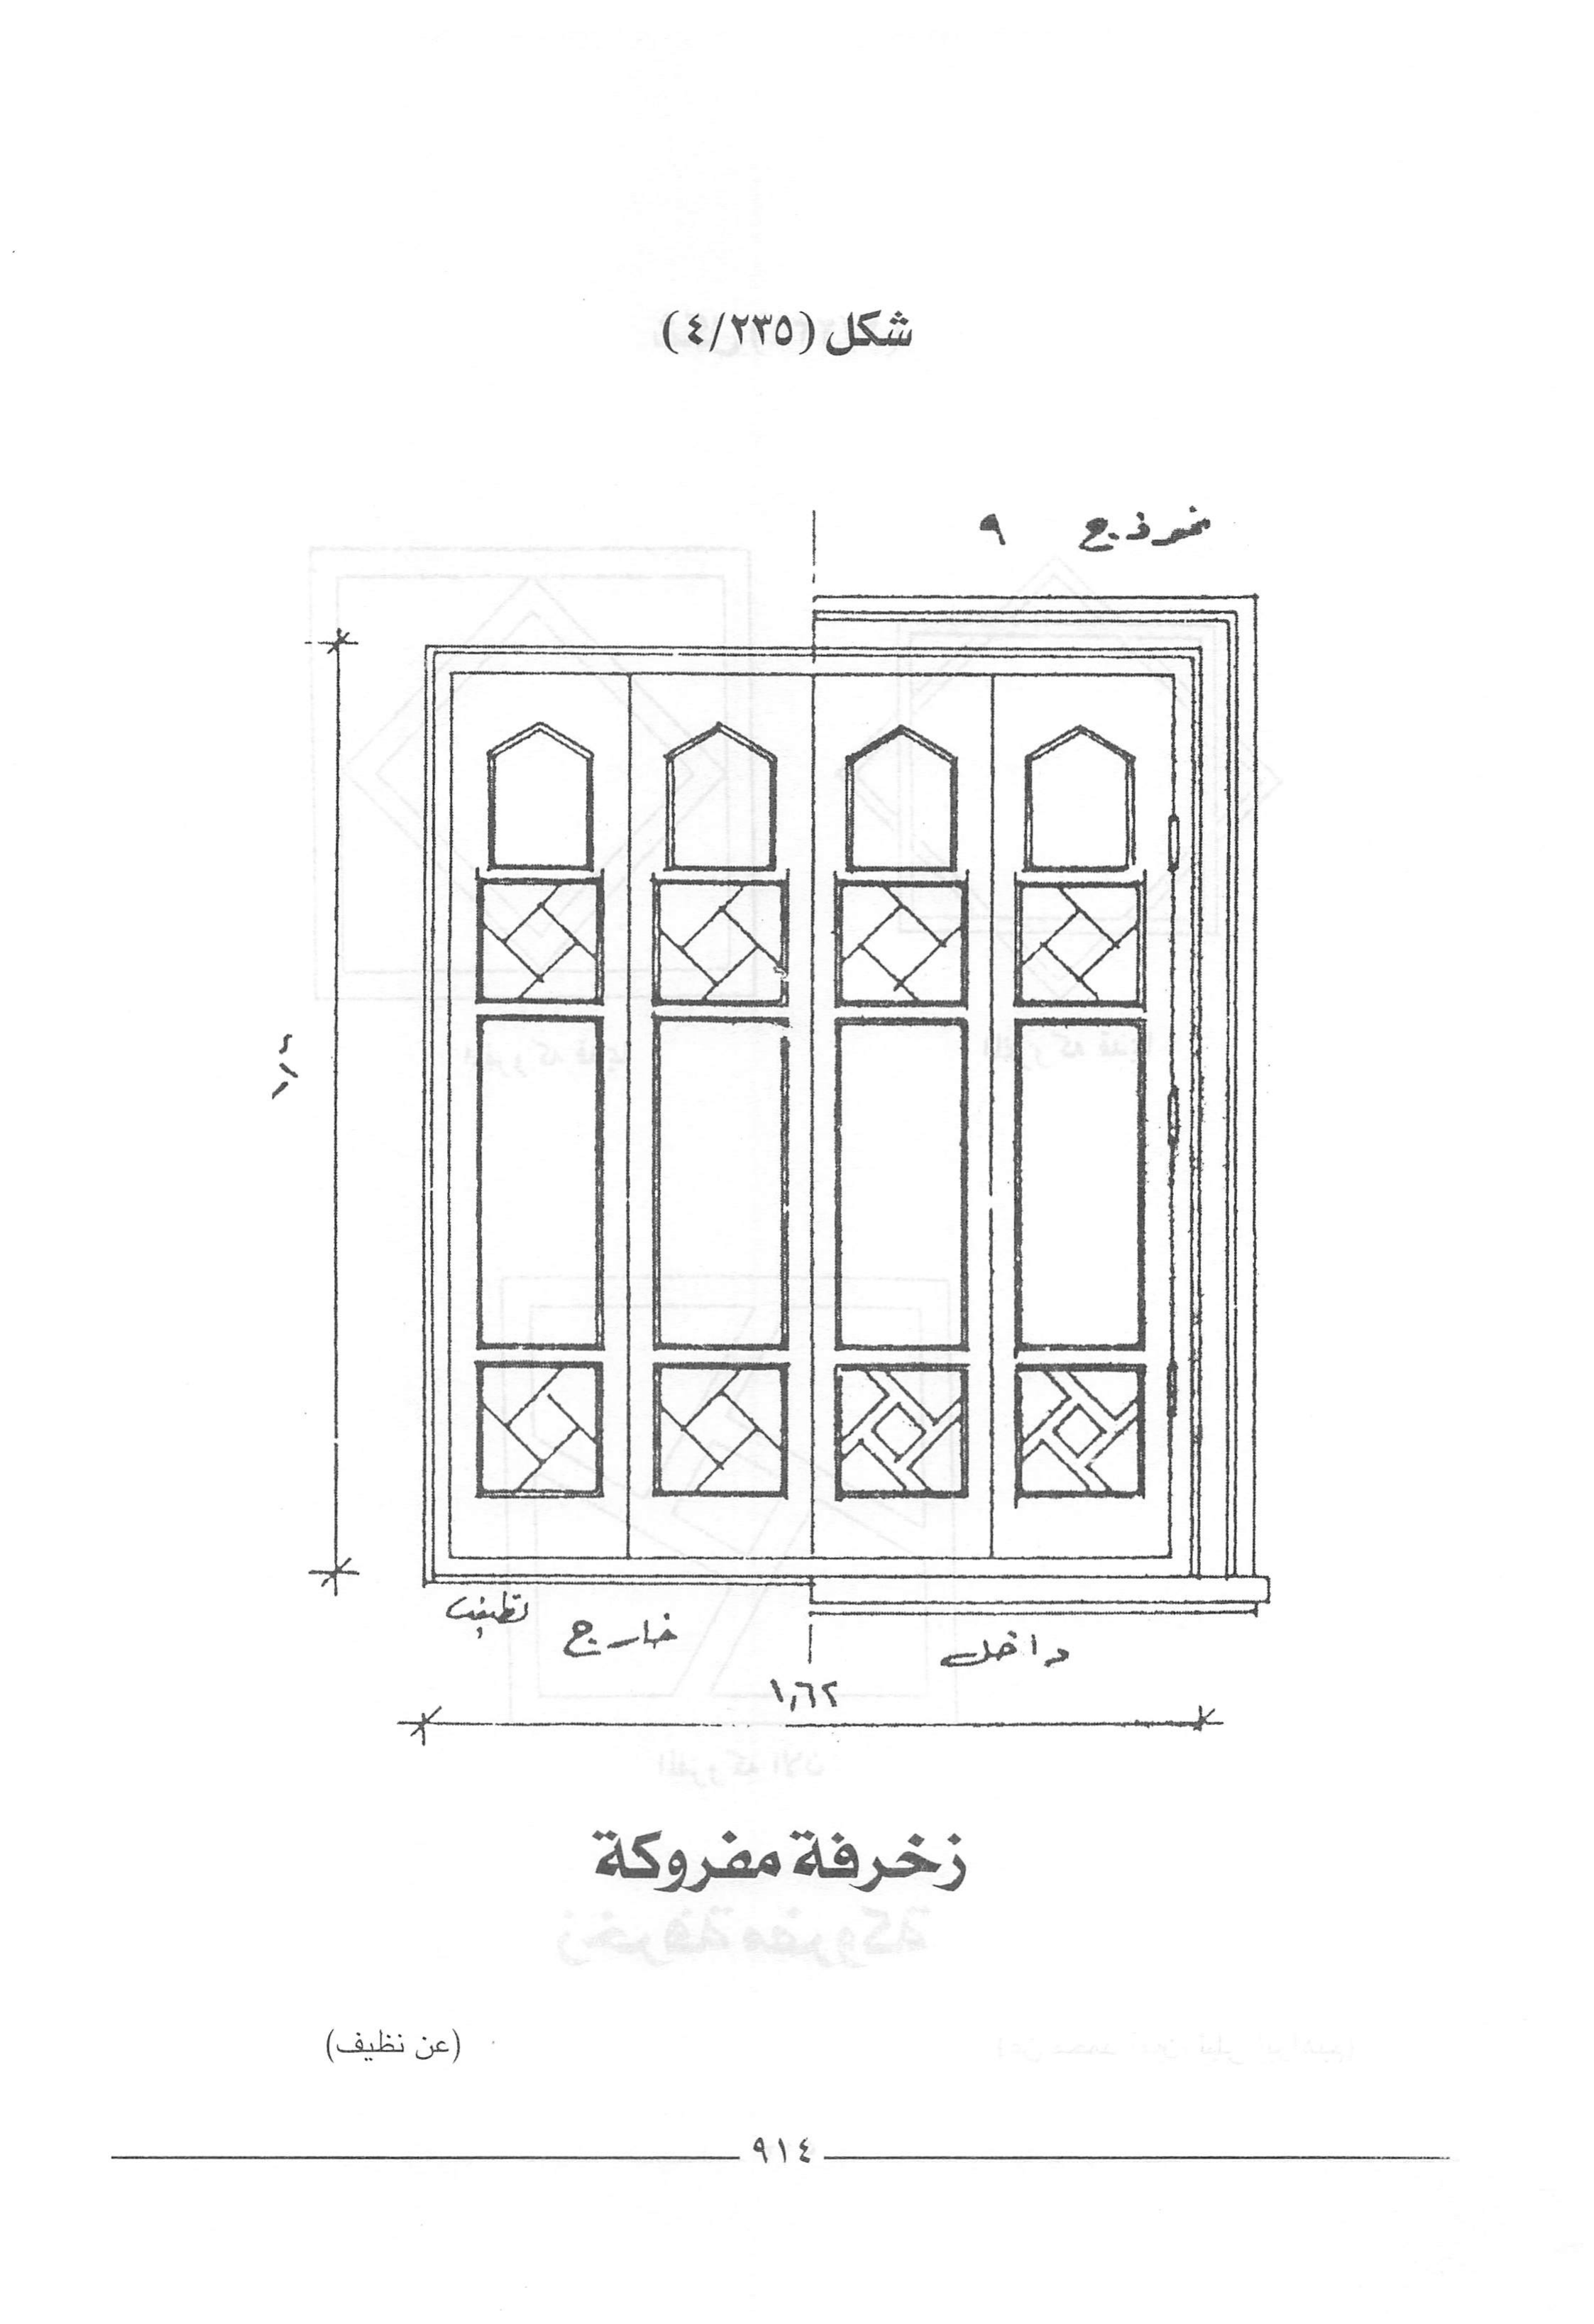 شكل (٤/٢٣٥)
نموذج ٩
نظيف
خارج
داخل
١,٦٢
زخرفة مفروكة
(عن نظيف)
٩١٤